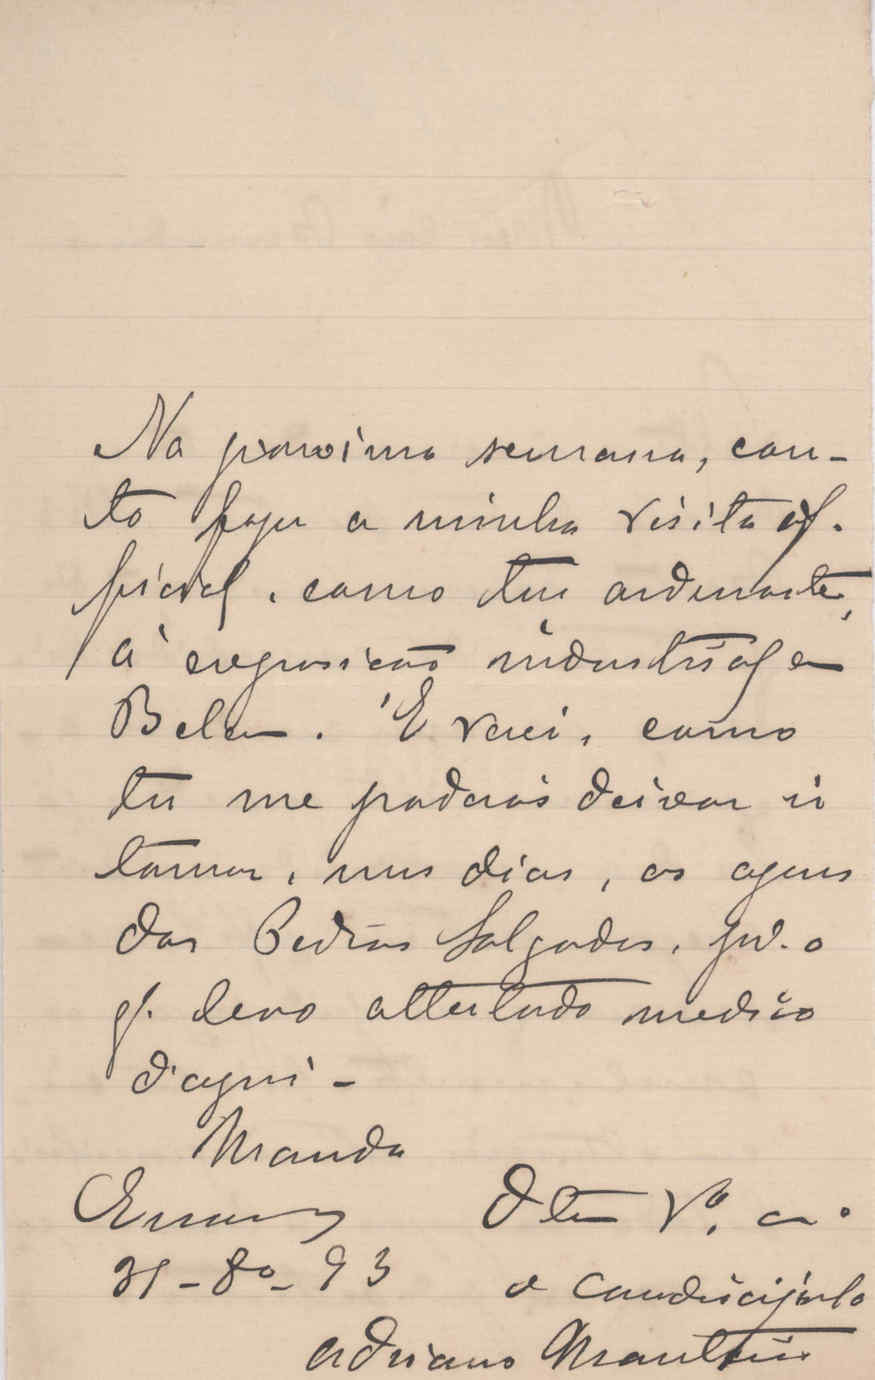 Na proxima semana, con-
to fazer a minha visita of-
ficial, como tu ordenaste,
á exposição industrial em
Belem. E verei, como
tu me poderás deixar ir
tomar, uns dias, as aguas
das Pedras Salgadas, pª. o
q. levo attestado medico
d'aqui -
Manda
31-8º-93
Do teu Vº. am.º
e condiscipulo
Adriano Monteiro